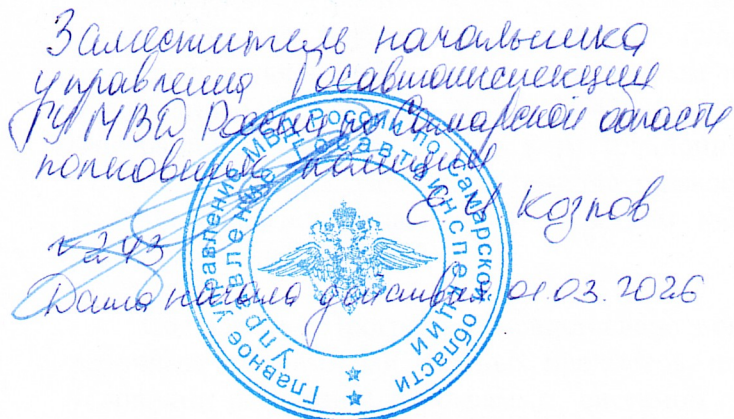 Заместитель начальника
управления Госавтоинспекции
ГУ МВД России по Самарской области
полковник полиции
Козлов
№ 243
Дата начала действия 01.03.2026
Главное управление МВД России по Самарской области
Управление Госавтоинспекции